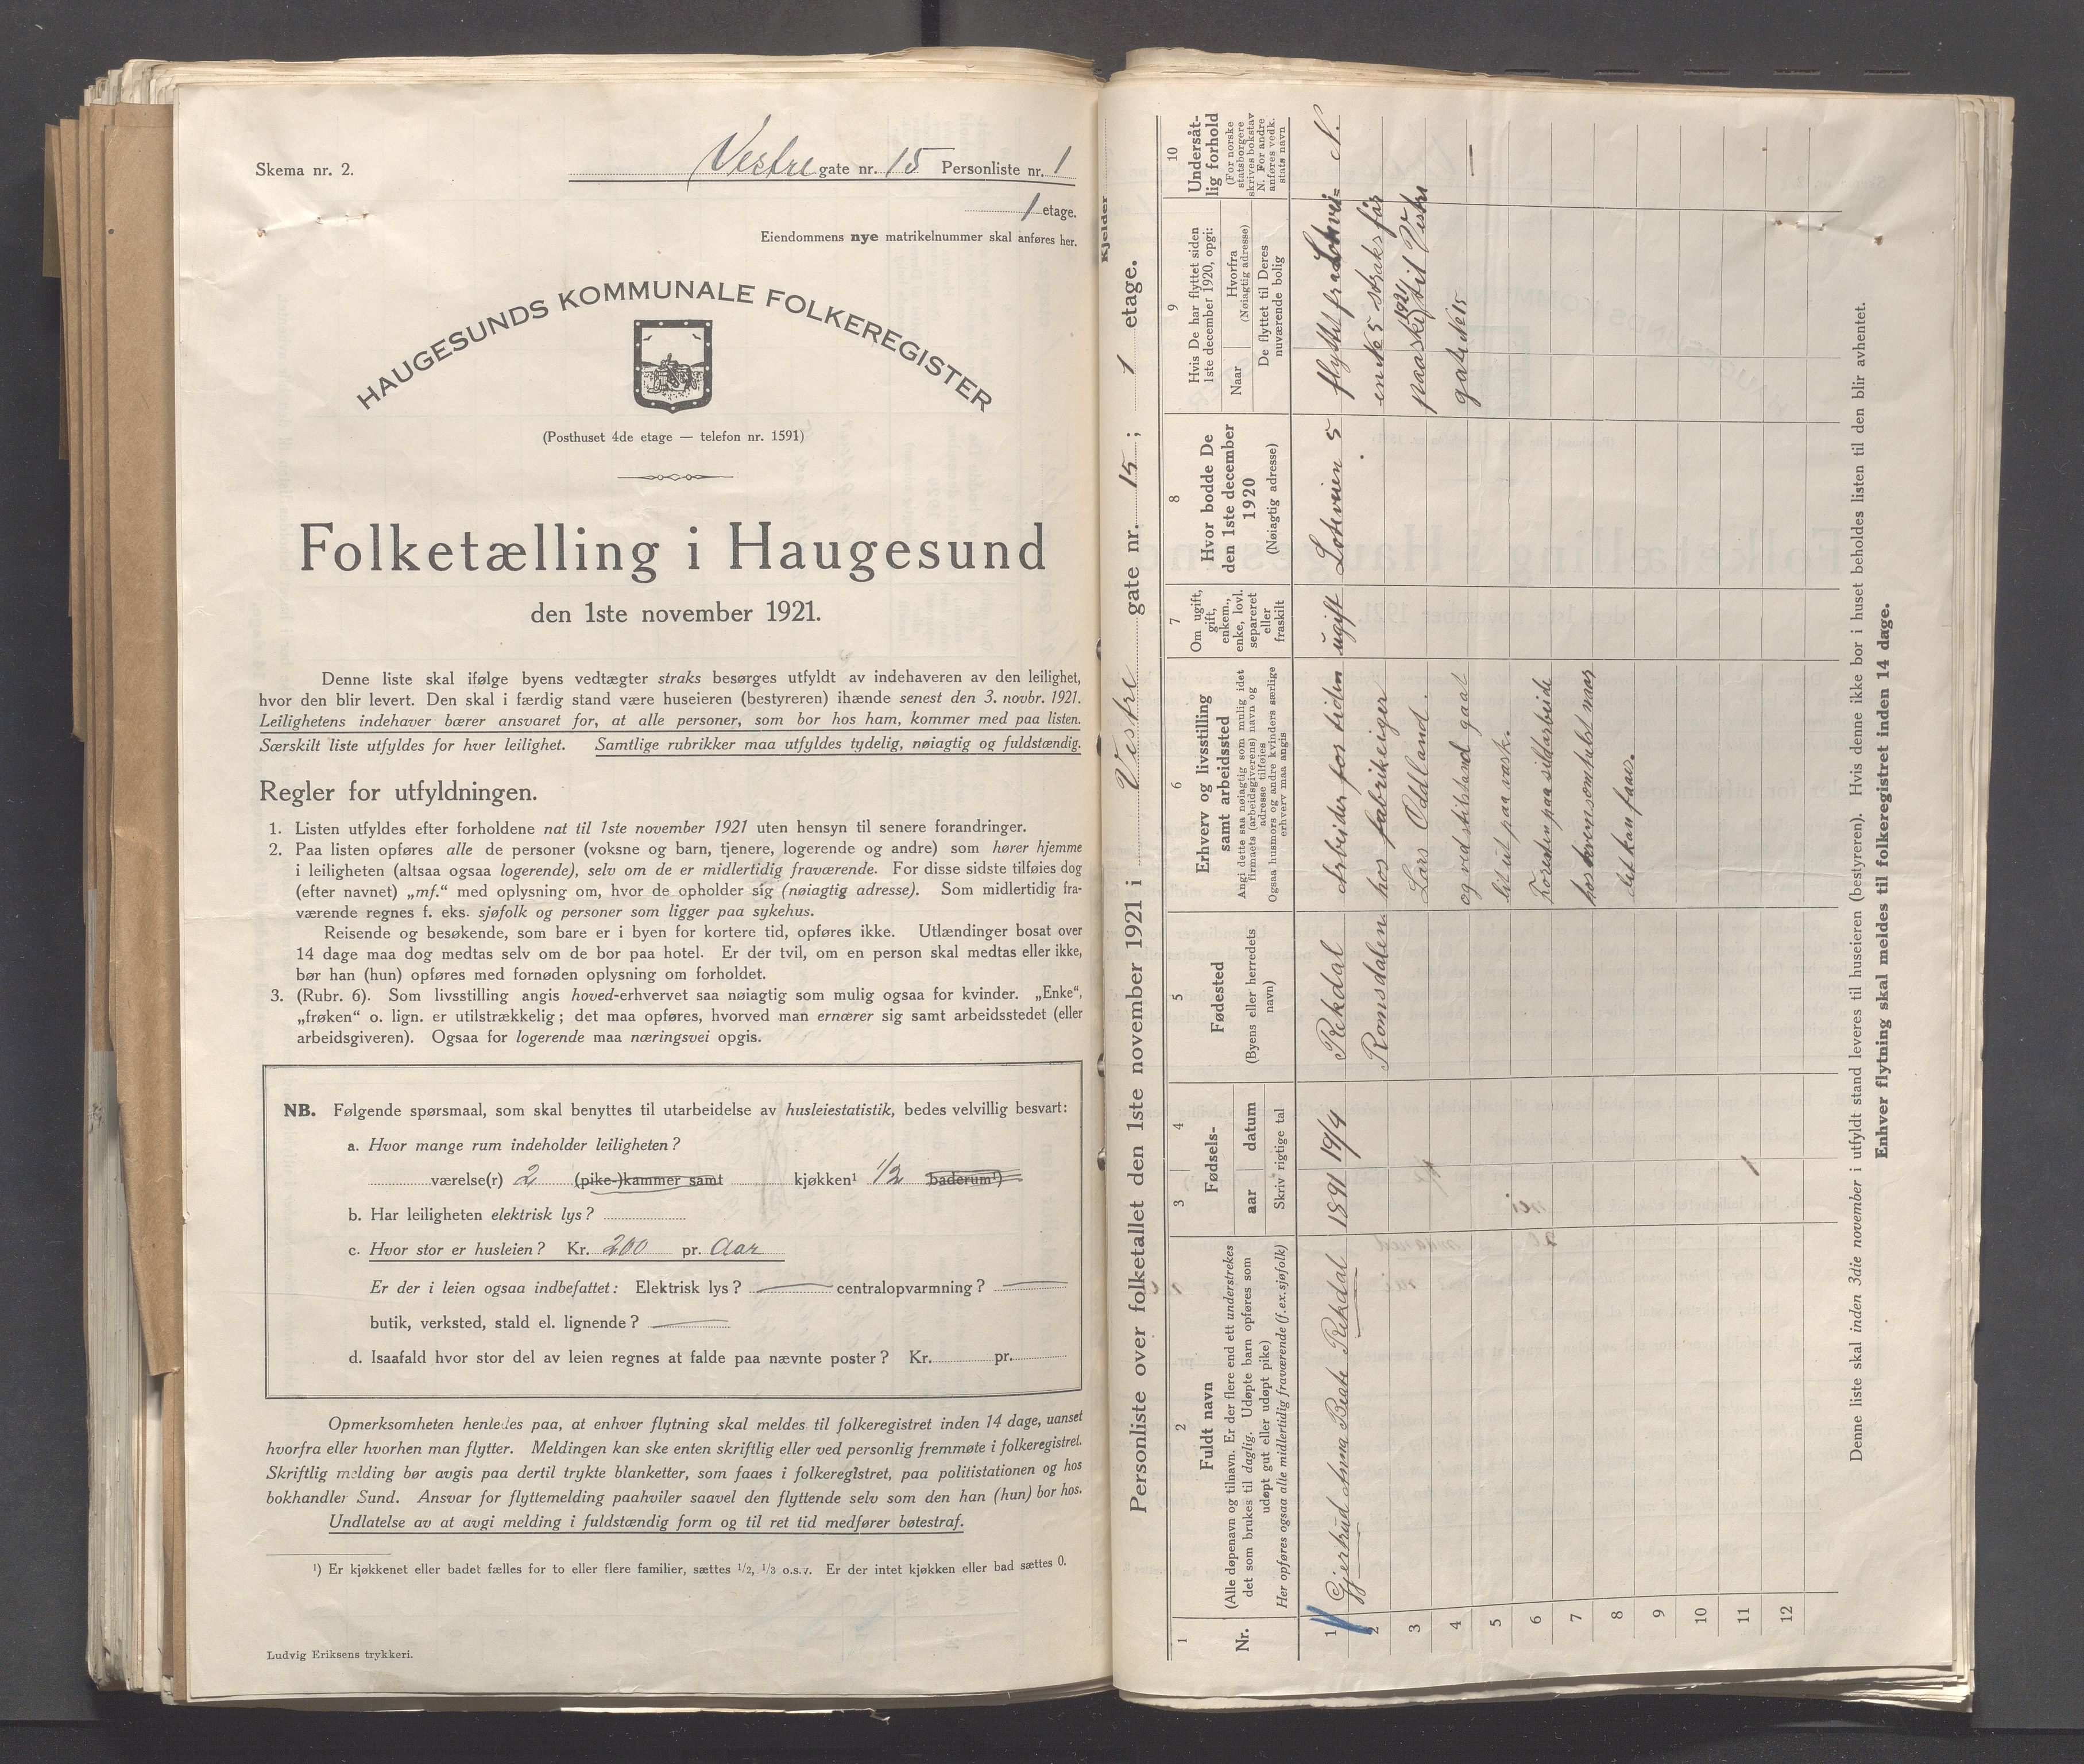 Skema nr. 2.
Vestre gate nr. 15 Personliste nr. 1
1 etage.
Eiendommens nye matrikelnummer skal anføres her.
HAUGESUNDS KOMMUNALE FOLKEREGISTER
(Posthuset 4de etage — telefon nr. 1591)
Folketælling i Haugesund
den 1ste november 1921.
Denne liste skal ifølge byens vedtægter straks besørges utfyldt av indehaveren av den leilighet,
hvor den blir levert. Den skal i færdig stand være huseieren (bestyreren) ihænde senest den 3. novbr. 1921.
Leilighetens indehaver bærer ansvaret for, at alle personer, som bor hos ham, kommer med paa listen.
Særskilt liste utfyldes for hver leilighet. Samtlige rubrikker maa utfyldes tydelig, nøiagtig og fuldstændig.
Regler for utfyldningen.
1. Listen utfyldes efter forholdene nat til 1ste november 1921 uten hensyn til senere forandringer.
2. Paa listen opføres alle de personer (voksne og barn, tjenere, logerende og andre) som hører hjemme
i leiligheten (altsaa ogsaa logerende), selv om de er midlertidig fraværende. For disse sidste tilføies dog
(efter navnet) „mf.“ med oplysning om, hvor de opholder sig (nøiagtig adresse). Som midlertidig fra-
værende regnes f. eks. sjøfolk og personer som ligger paa sykehus.
Reisende og besøkende, som bare er i byen for kortere tid, opføres ikke. Utlændinger bosat over
14 dage maa dog medtas selv om de bor paa hotel. Er der tvil, om en person skal medtas eller ikke,
bør han (hun) opføres med fornøden oplysning om forholdet.
3. (Rubr. 6). Som livsstilling angis hoved-erhvervet saa nøiagtig som mulig ogsaa for kvinder. „Enke“,
„frøken“ o. lign. er utilstrækkelig; det maa opføres, hvorved man ernærer sig samt arbeidsstedet (eller
arbeidsgiveren). Ogsaa for logerende maa næringsvei opgis.
NB. Følgende spørsmaal, som skal benyttes til utarbeidelse av husleiestatistik, bedes velvillig besvart:
a. Hvor mange rum indeholder leiligheten?
værelse(r) 2 (pike-)kammer samt kjøkken¹ 1/2 baderum¹)
b. Har leiligheten elektrisk lys?
c. Hvor stor er husleien? Kr. 200 pr. Aar
Er der i leien ogsaa indbefattet: Elektrisk lys? — centralopvarmning? —
butik, verksted, stald el. lignende? —
d. Isaafald hvor stor del av leien regnes at falde paa nævnte poster? Kr. pr.
Opmerksomheten henledes paa, at enhver flytning skal meldes til folkeregistret inden 14 dage, uanset
hvorfra eller hvorhen man flytter. Meldingen kan ske enten skriftlig eller ved personlig fremmøte i folkeregistret.
Skriftlig melding bør avgis paa dertil trykte blanketter, som faaes i folkeregistret, paa politistationen og hos
bokhandler Sund. Ansvar for flyttemelding paahviler saavel den flyttende selv som den han (hun) bor hos.
Undlatelse av at avgi melding i fuldstændig form og til ret tid medfører bøtestraf.
¹) Er kjøkkenet eller badet fælles for to eller flere familier, sættes 1/2, 1/3 o.s.v. Er der intet kjøkken eller bad sættes 0.
Ludvig Eriksens trykkeri.
Kjelder
Personliste over folketallet den 1ste november 1921 i Vestre gate nr. 15; 1 etage.
1
Nr.
2
Fuldt navn
(Alle døpenavn og tilnavn. Er der flere end ett understrekes
det som brukes til daglig. Udøpte barn opføres som
udøpt gut eller udøpt pike)
Her opføres ogsaa alle midlertidig fraværende (f.ex.sjøfolk)
3 4
Fødsels-
aar datum
Skriv rigtige tal
5
Fødested
(Byens eller herredets
navn)
6
Erhverv og livsstilling
samt arbeidssted
Angi dette saa nøiagtig som mulig idet
firmaets (arbeidsgiverens) navn og
adresse tilføies
Ogsaa husmors og andre kvinders særlige
erhverv maa angis
7
Om ugift,
gift,
enkem.,
enke, lovl.
separeret
eller
fraskilt
8
Hvor bodde De
den 1ste december
1920
(Nøiagtig adresse)
9
Hvis De har flyttet siden
1ste december 1920, opgi:
Naar
Hvorfra
(Nøiagtig adresse)
De flyttet til Deres
nuværende bolig
10
Undersåt-
lig forhold
(For norske
statsborgere
skrives bokstav
N. For andre
anføres vedk.
stats navn
1 Gjertrud Anna Beate Rekdal 1891 19/4 Rekdal Arbeider for tiden ugift Lotsveien 5 flyttet fra Lotsvei= N.
2 Romsdalen hos fabrikeiger en No 5 straks før
3 Lars Oddland. paaske 1921 til Vestre
4 og ved stilstand gaat gate No 15 —
5 lit ut paa vask.
6 Foresten paa sildarbeide
7 hos hvemsomhelst naar
8 det kan faaes.
9
10
11
12
Denne liste skal inden 3die november i utfyldt stand leveres til huseieren (bestyreren). Hvis denne ikke bor i huset beholdes listen til den blir avhentet.
Enhver flytning skal meldes til folkeregistret inden 14 dage.